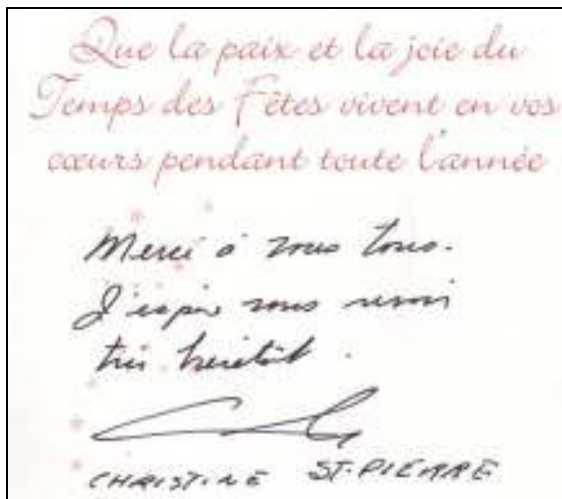 Que la paix et la joie du
Temps des Fêtes vivent en vos
cœurs pendant toute l'année
Merci à vous tous.
J'espère vous revoir
très bientôt.
CHRISTINE ST-PIERRE